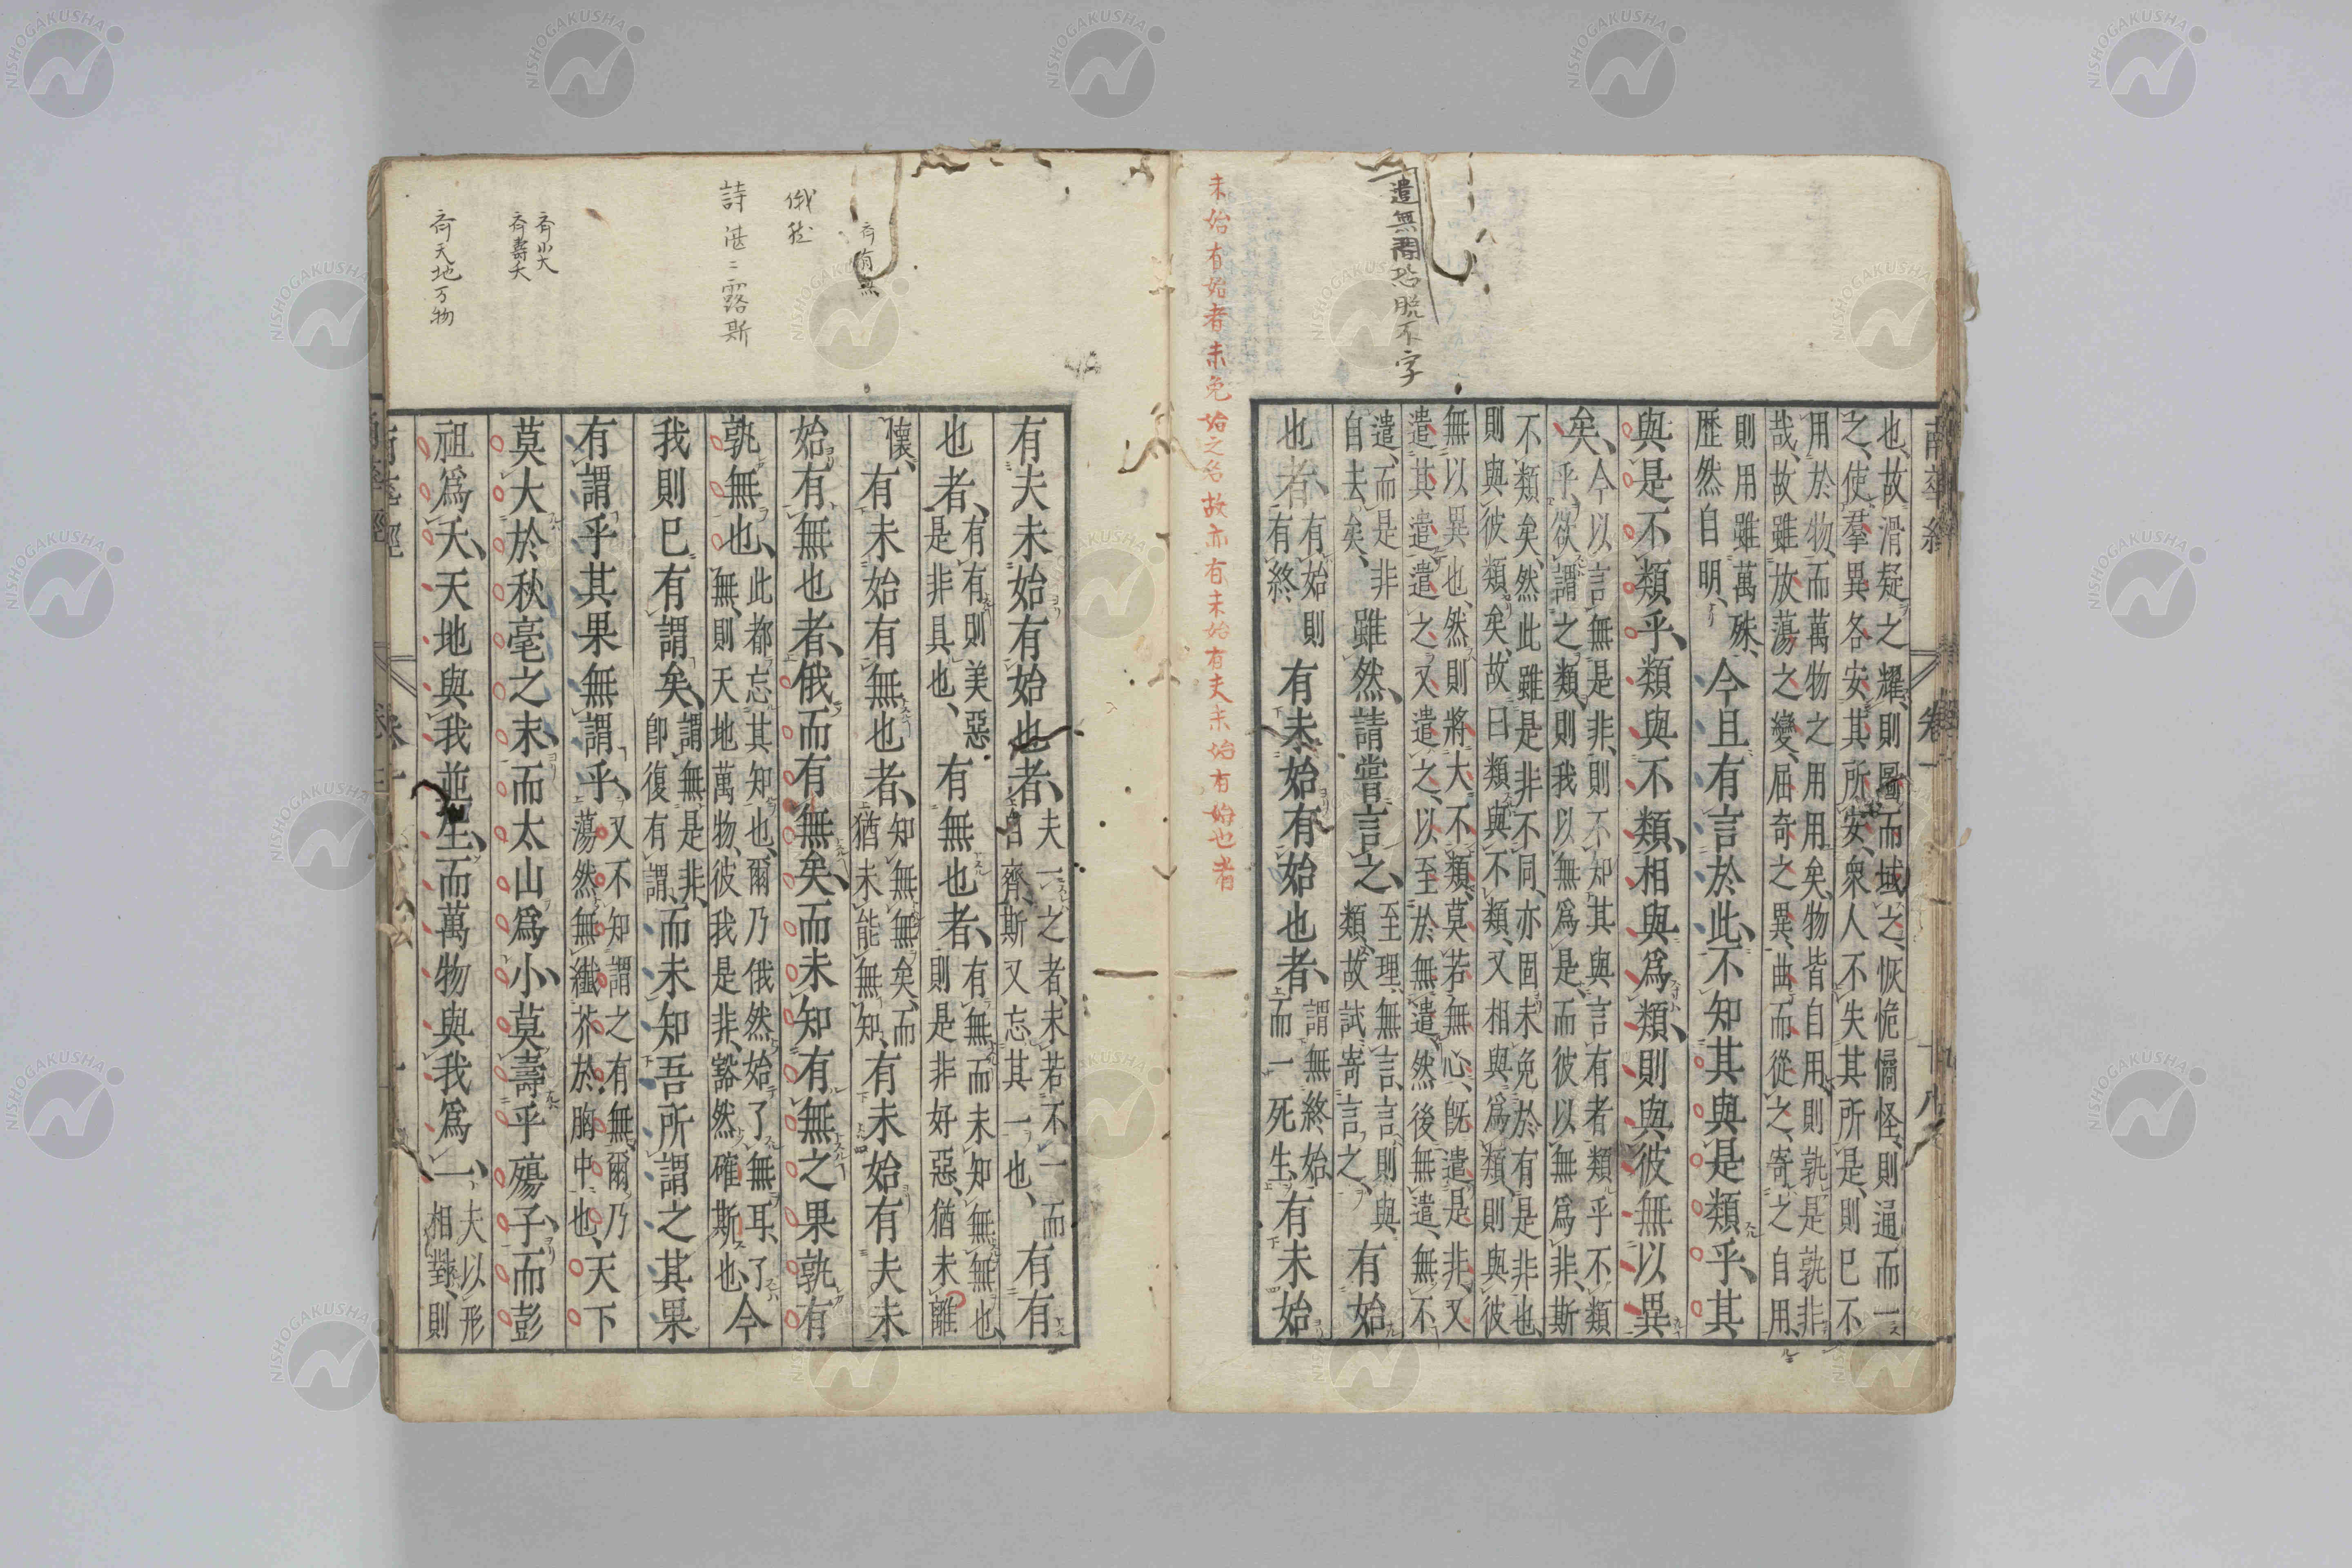 南華經
卷一
十八
也、故滑疑之耀、則圖而域之、恢恑憰怪、則通而一
之、使羣異各安其所安、衆人不失其所是、則已不
用於物、而萬物之用用矣、物皆自用、則孰是孰非
哉、故雖放蕩之變、屈奇之異、曲而從之、寄之自用、
則用雖萬殊、
歷然自明、
今且有言於此、不知其與是類乎、其
與是不類乎、類與不類、相與爲類、則與彼無以異
矣、
今以言無是非、則不知其與言有者類乎不類
乎、欲謂之類、則我以無爲是、而彼以無爲非、斯
不類矣、然此雖是非不同、亦固未免於有是非也、
則與彼類矣、故曰類與不類、又相與爲類、則與彼
無以異也、然則將大不類、莫若無心、旣遣是非、又
遣其遣、遣之又遣之、以至於無遣、然後無遣、無不
遣、而是非
自去矣、
雖然、請嘗言之、
至理無言、言則與
類、故試寄言之、
有始
也者、
有始則
有終
有未始有始也者、
謂無終始、
而一死生、
有未始
遣無間恐脱不字
未始有始者未免始之名故亦有未始有夫未始有始也者
有夫未始有始也者、
夫一之者、未若不一而
自齊、斯又忘其一也、
有有
也者、
有有則美惡
是非具也、
有無也者、
有無而未知無無也、
則是非好惡、猶未離
懷、
有未始有無也者、
知無無矣、而
猶未能無知、
有未始有夫未
始有無也者、俄而有無矣、而未知有無之果孰有
孰無也、
此都忘其知也、爾乃俄然始了無耳、了
無、則天地萬物、彼我是非、豁然確斯也、
今
我則已有謂矣、
謂無是非、
卽復有謂、
而未知吾所謂之其果
有謂乎其果無謂乎、
又不知謂之有無、爾乃
蕩然無纖芥於胸中也、
天下
莫大於秋毫之末、而太山爲小、莫壽乎殤子、而彭
祖爲夭、天地與我並生、而萬物與我爲一、
夫以形
相對、則
齊有無
俄然
詩湛々露斯
齊小大
齊壽夭
齊天地万物